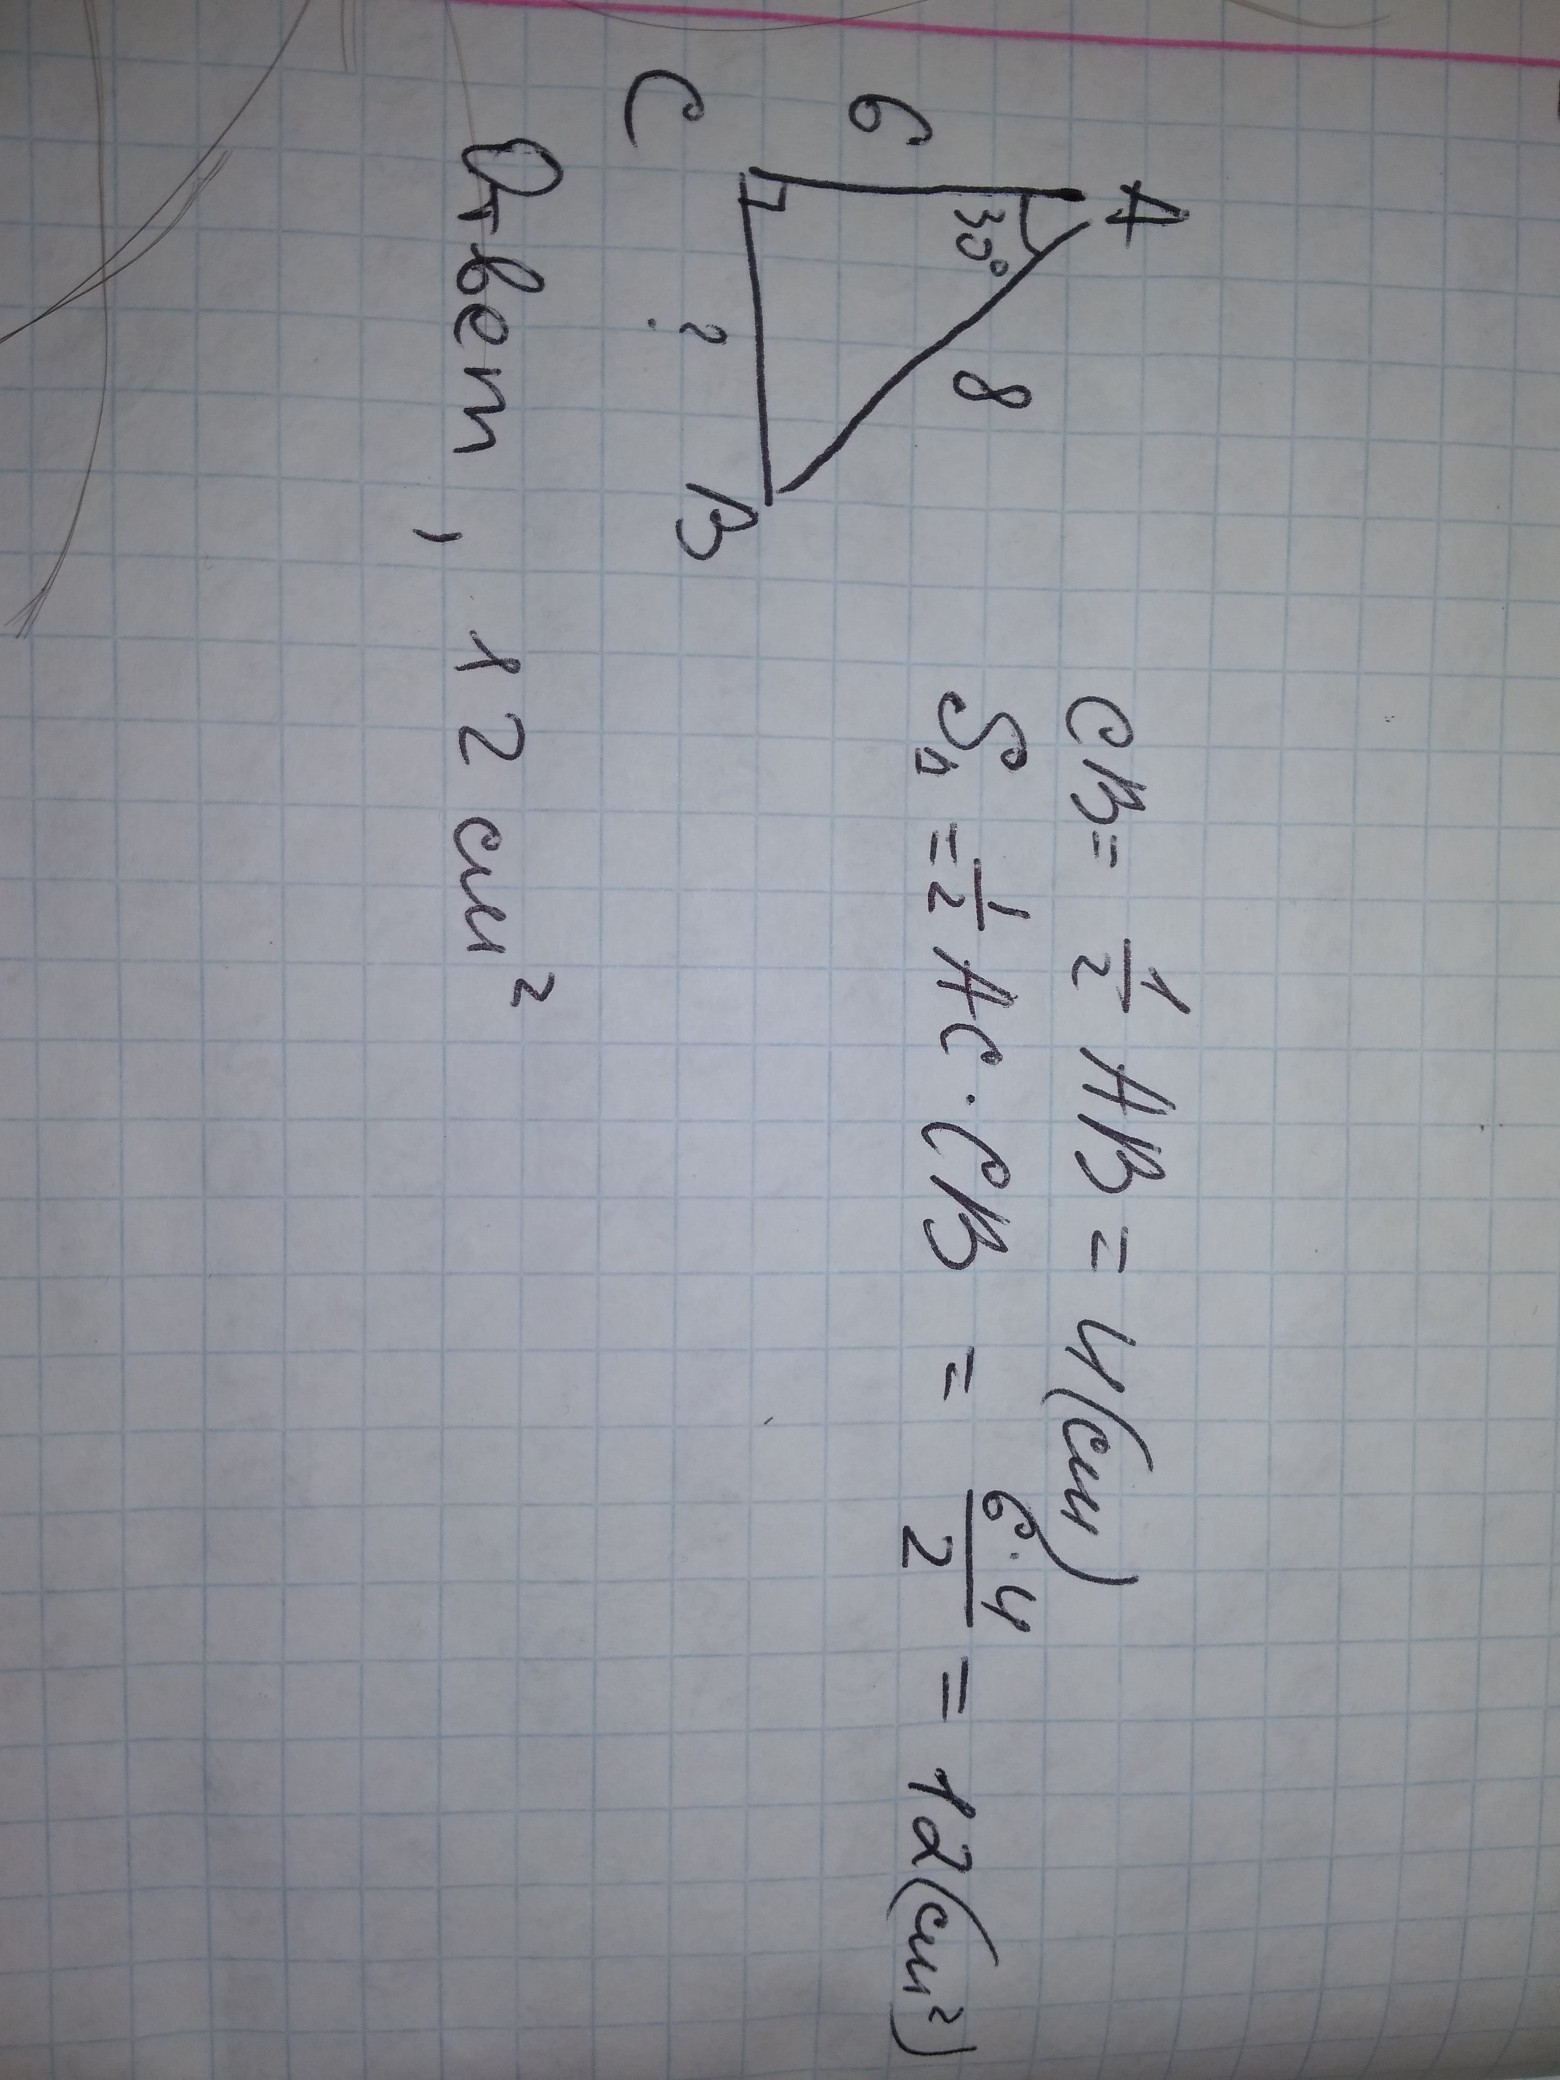 A
30°
6
8
C
?
B
CB = 1/2 AB = 4 (см)
S△ = 1/2 AC · CB = 6·4/2 = 12 (см²)
Ответ, 12 см²